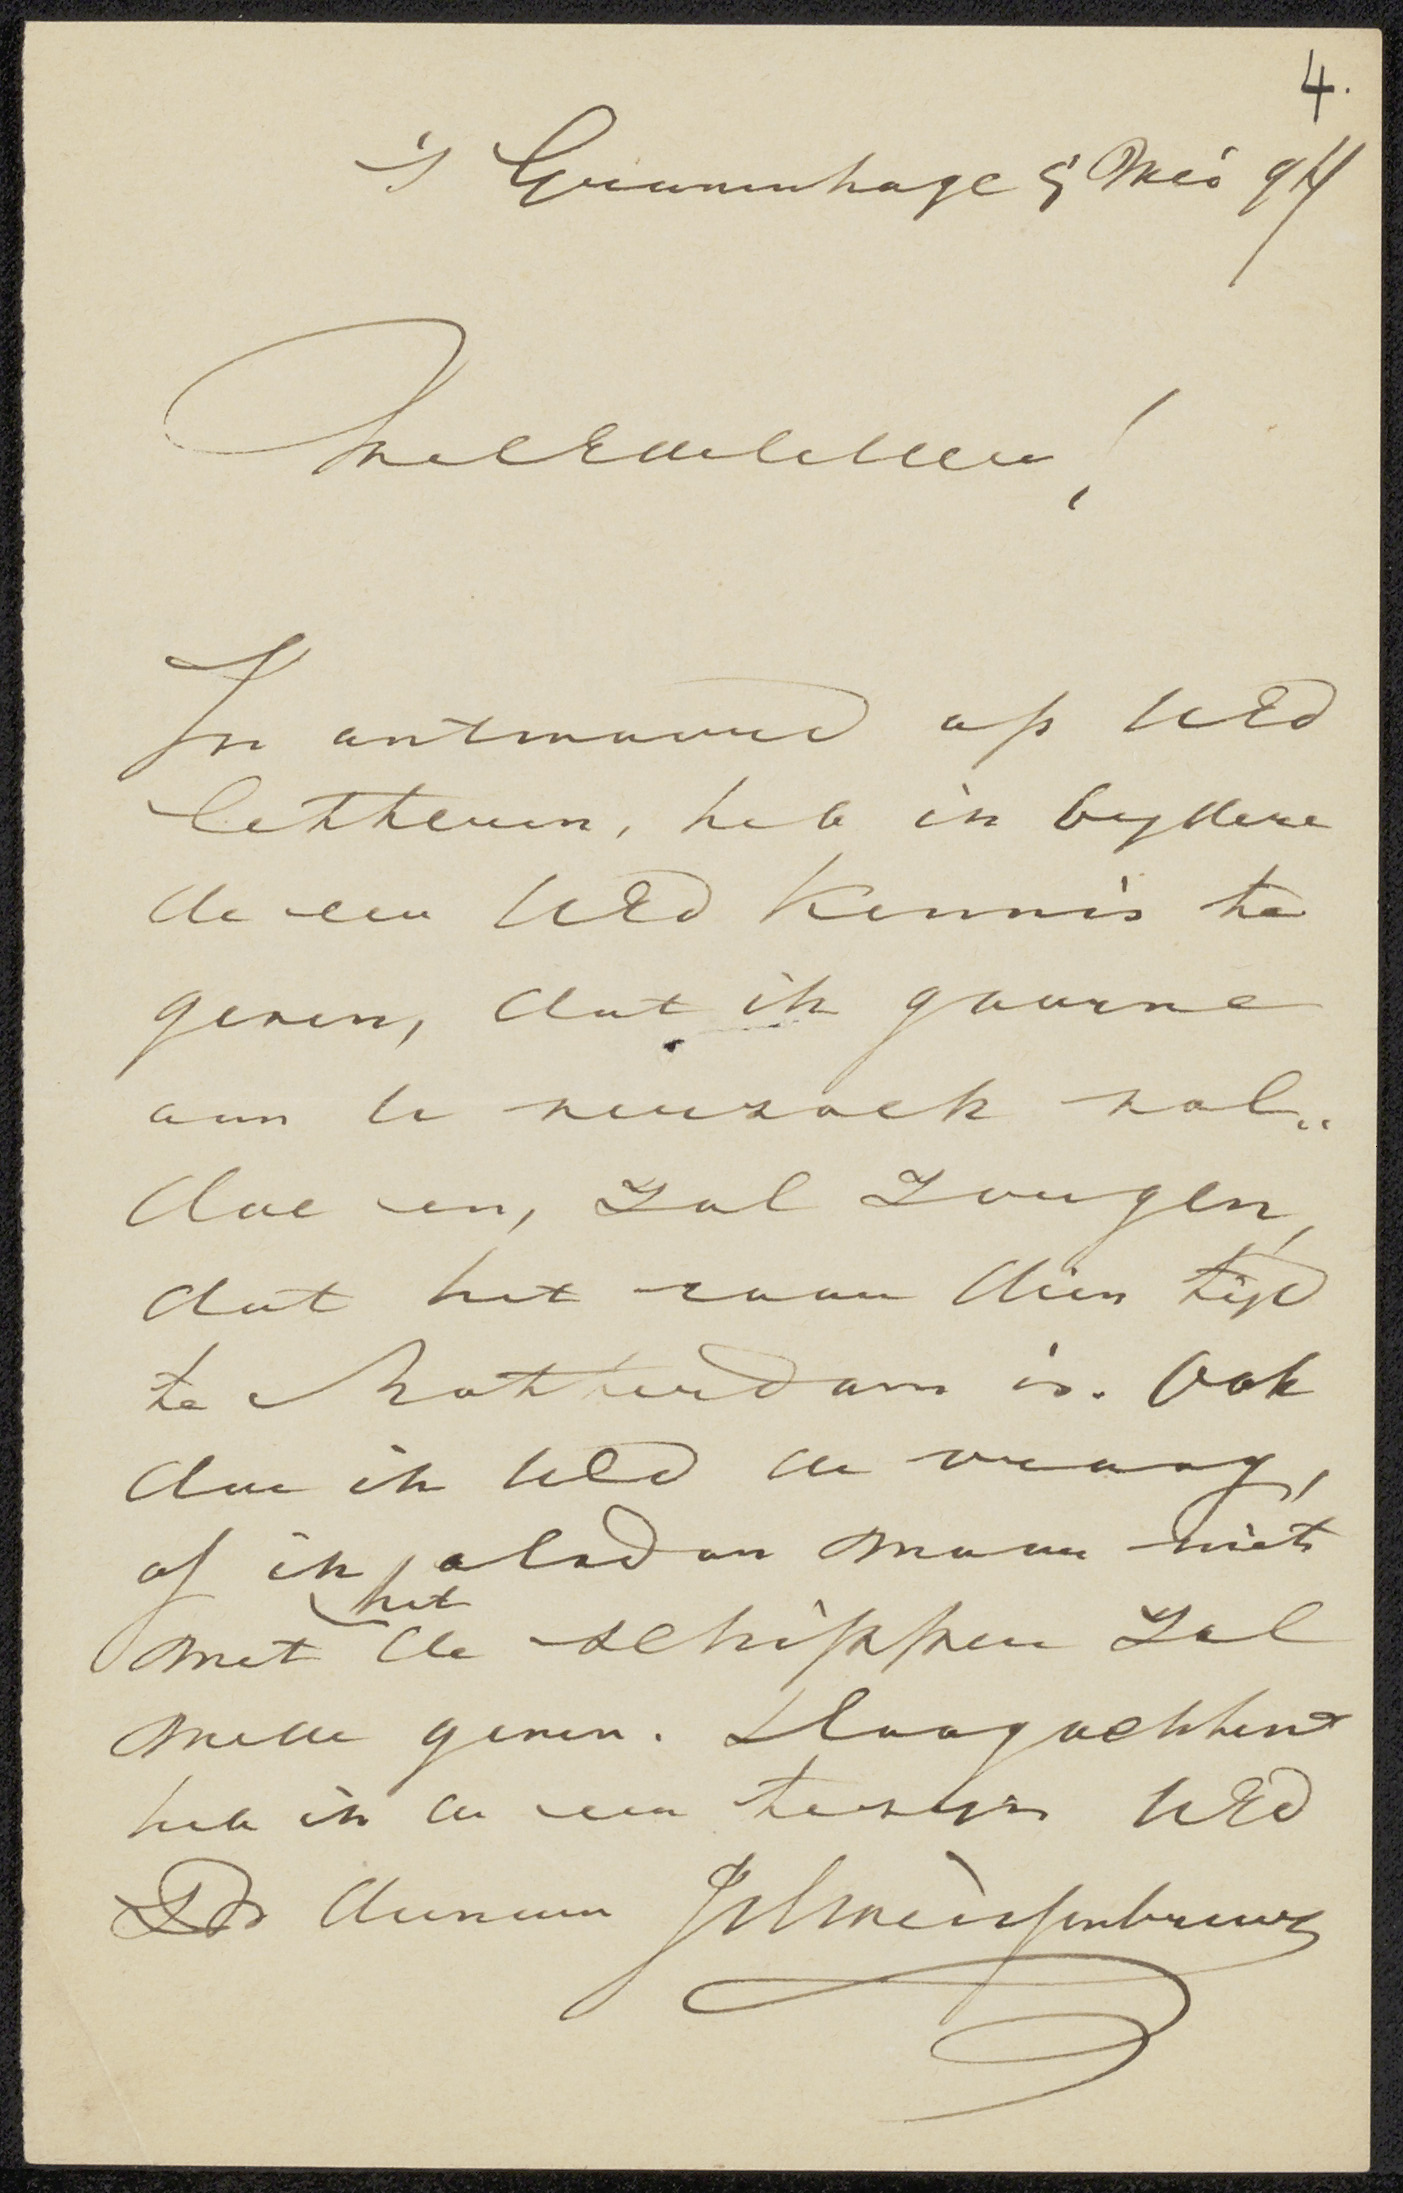 4.
's Gravenhage 5 Mei 94
WelEdeleHeer!
In antwoord op UEd
letteren, heb ik by deze
de eer UEd Kennis te
geven, dat ik gaarne
aan U verzoek vol..
doe en, zal zorgen,
dat het voor dien tijd
te Rotterdam is. Ook
doe ik UEd de vraag,
of ik alsdan maar niet
het
met de schipper zal
mede geven. Hoogachtend
heb ik de eer te zyn UEd
Dr dienaar JHWeissenbruch